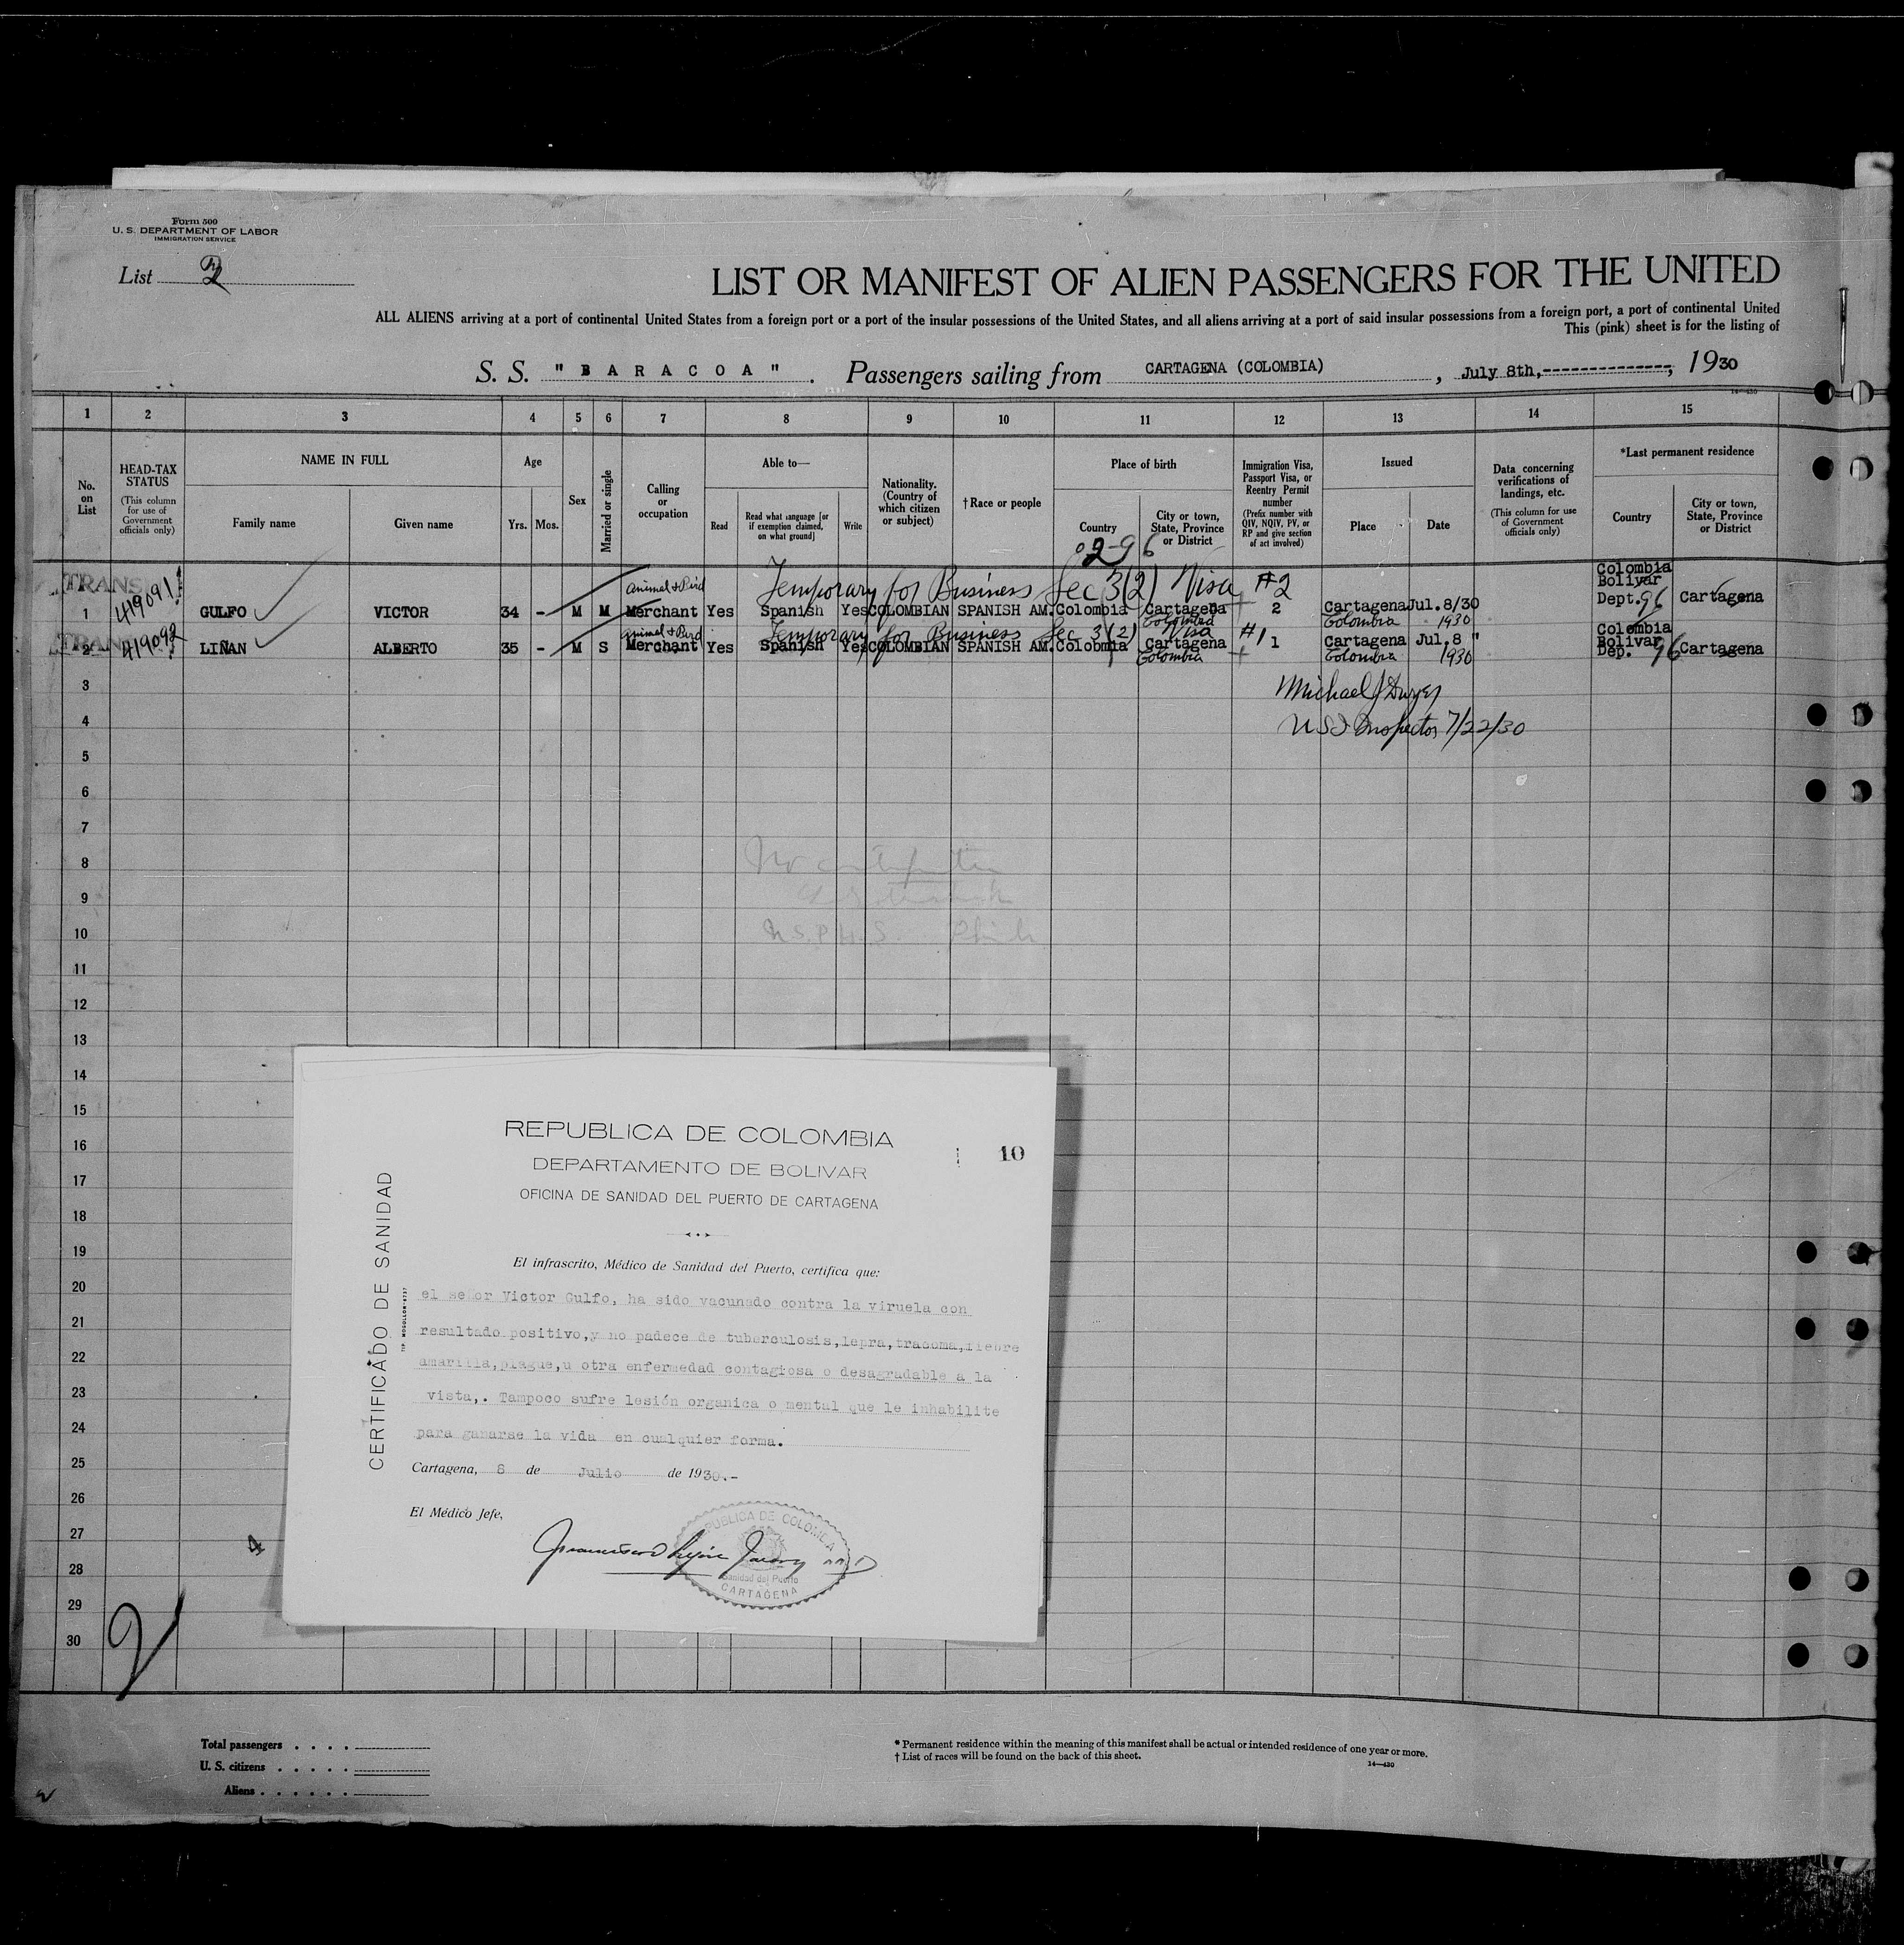 Form 500
U. S. DEPARTMENT OF LABOR
IMMIGRATION SERVICE
List 2
LIST OR MANIFEST OF ALIEN PASSENGERS FOR THE UNITED
ALL ALIENS arriving at a port of continental United States from a foreign port or a port of the insular possessions of the United States, and all aliens arriving at a port of said insular possessions from a foreign port, a port of continental United
This (pink) sheet is for the listing of
S. S. "BARACOA". Passengers sailing from CARTAGENA (COLOMBIA), July 8th,---------------, 1930
14—430
1 2 3 4 5 6 7 8 9 10 11 12 13 14 15
No. on List
HEAD-TAX STATUS
(This column for use of Government officials only)
NAME IN FULL
Family name
Given name
Age
Yrs.
Mos.
Sex
Married or single
Calling or occupation
Able to—
Read
Read what language [or if exemption claimed, on what ground]
Write
Nationality. (Country of which citizen or subject)
†Race or people
Place of birth
Country
City or town, State, Province or District
Immigration Visa, Passport Visa, or Reentry Permit number
(Prefix number with QIV, NQIV, PV, or RP and give section of act involved)
Issued
Place
Date
Data concerning verifications of landings, etc.
(This column for use of Government officials only)
*Last permanent residence
Country
City or town, State, Province or District
02-96
TRANS 419091 animal & Bird Temporary for Business Sec 3(2) Visa #2 Colombia Bolivar
1 GULFO VICTOR 34 - M M Merchant Yes Spanish Yes COLOMBIAN SPANISH AM. Colombia Cartagena 2 Cartagena Jul.8/30 Dept. 96 Cartagena
Colombia Colombia 1930
TRANS 419092 animal & Bird Temporary for Business Sec 3(2) Visa #1 Colombia Bolivar
2 LIÑAN ALBERTO 35 - M S Merchant Yes Spanish Yes COLOMBIAN SPANISH AM. Colobmia Cartagena 1 Cartagena Jul.8 " Dep. 96 Cartagena
Colombia Colombia 1930
3 Michael J Dwyer
4 US I Inspector 7/22/30
5
6
7
8
9
10 U.S.P.H.S.
11
12
13
14
15
16
17
18
19
20
21
22
23
24
25
26
27
28
29
30
REPUBLICA DE COLOMBIA
10
DEPARTAMENTO DE BOLIVAR
OFICINA DE SANIDAD DEL PUERTO DE CARTAGENA
CERTIFICADO DE SANIDAD
TIP. MOGOLLON-4737
El infrascrito, Médico de Sanidad del Puerto, certifica que:
el se or Victor Gulfo, ha sido vacunado contra la viruela con
resultado positivo,y no padece de tuberculosis,lepra,tracoma,fiebre
amarilla,plague,u otra enfermedad contagiosa o desagradable a la
vista,. Tampoco sufre lesión organica o mental que le inhabilite
para ganarse la vida en cualquier forma.
Cartagena, 8 de Julio de 1930.-
El Médico Jefe,
REPUBLICA DE COLOMBIA
Sanidad del Puerto
CARTAGENA
4
2
Total passengers . . . .
U. S. citizens . . . . .
Aliens . . . . . .
* Permanent residence within the meaning of this manifest shall be actual or intended residence of one year or more.
† List of races will be found on the back of this sheet.
14—430